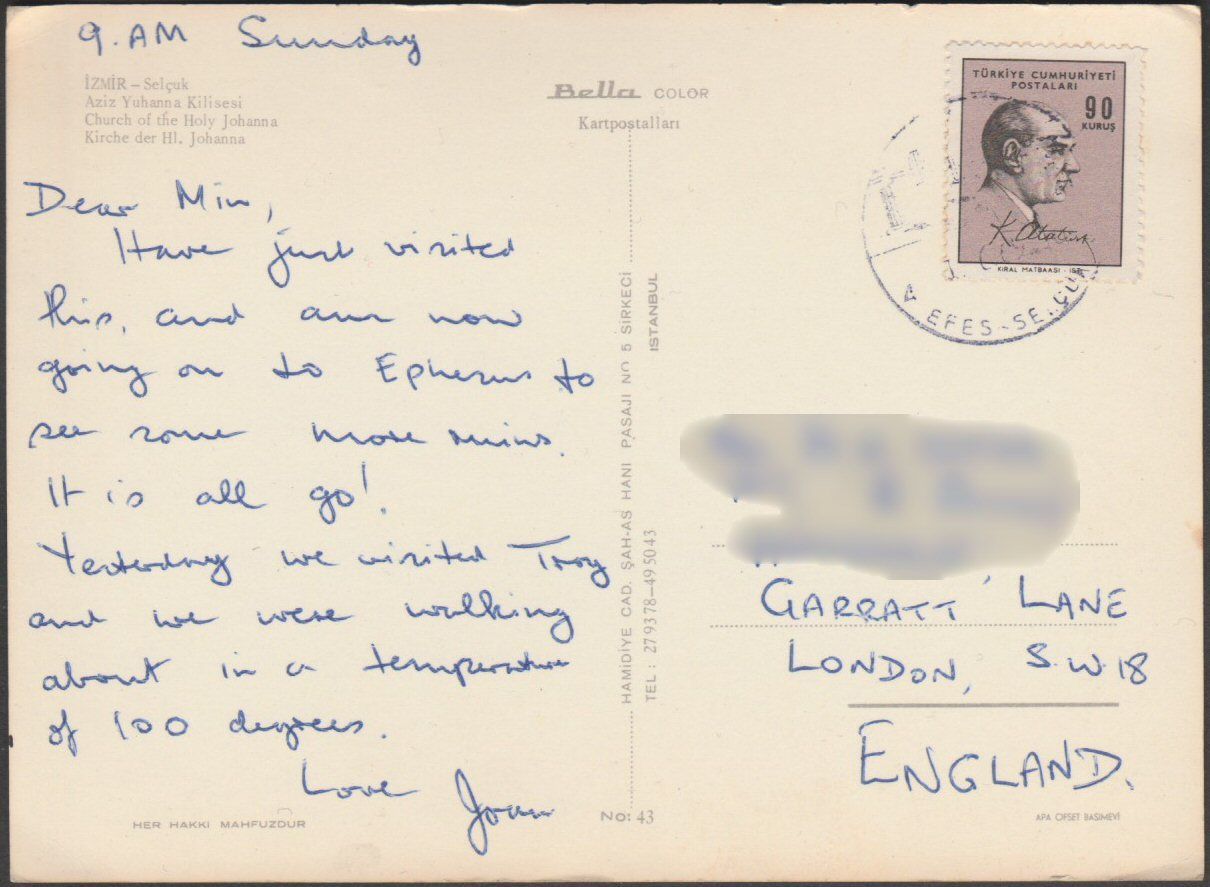 9. AM Sunday
İZMİR – Selçuk
Aziz Yuhanna Kilisesi
Church of the Holy Johanna
Kirche der Hl. Johanna
Bella COLOR
Kartpostalları
Dear Min,
Have just visited
this, and am now
going on to Ephesus to
see some more ruins.
It is all go!
Yesterday we visited Troy
and we were walking
about in a temperature
of 100 degrees.
Love Joan
HER HAKKI MAHFUZDUR
HAMİDİYE CAD. ŞAH-AS HANI PASAJI NO 5 SİRKECİ
İSTANBUL
TEL : 27 93 78–49 50 43
No: 43
TÜRKİYE CUMHURİYETİ
POSTALARI
90
KURUŞ
K. Atatürk
KIRAL MATBAASI - İST.
EFES-SELÇUK
GARRATT LANE
LONDON, S.W.18
ENGLAND.
APA OFSET BASIMEVİ